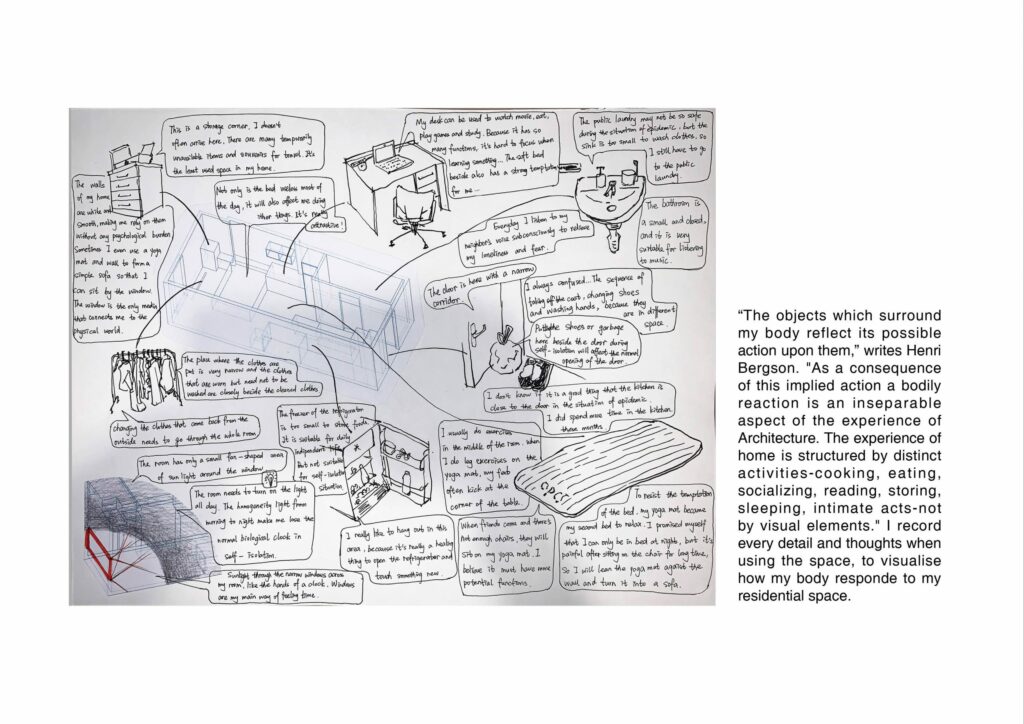 This is a storage corner. I doesn't
often arrive here. There are many temporarily
unavailable items and souvenirs for travel. It's
the least used space in my home.
The walls
of my home
are white and
smooth, making me rely on them
without any psychological burden.
Sometimes I even use a yoga
mat and wall to form a
simple sofa so that I
can sit by the window.
The window is the only media
that connects me to the
physical world.
Not only is the bed useless most of
the day, it will also affect me doing
other things. It's really
attractive!
My desk can be used to watch movie, eat,
play games and study. Because it has so
many functions, it's hard to focus when
learning something... The soft bed
beside also has a strong temptation
for me...
The public laundry may not be so safe
during the situation of epidemic, but the
sink is too small to wash clothes, so
I still have to go
to the public
laundry.
The bathroom is
a small and closed,
and it is very
suitable for listening
to music.
Everyday I listen to my
neighbor's voice subconsciously to relieve
my loneliness and fear.
The door is here with a narrow
corridor.
I always confused... The sequence of
taking off the coat, changing shoes
and washing hands, because they
are in different
space.
Putting shoes or garbage
here beside the door during
self-isolation will affect the normal
opening of the door.
I don't know if it is a good thing that the kitchen is
close to the door in the situation of epidemic.
I did spend more time in the kitchen
these months.
The place where the clothes are
put is very narrow and the clothes
that are worn but need not to be
washed are closely beside the cleaned clothes
changing the clothes that come back from the
outside needs to go through the whole room.
The freezer of the refrigerator
is too small to store foods.
It is suitable for daily
independent life
But not suitable
for self-isolation
situation.
The room has only a small fan-shaped area
of sun light around the window
The room needs to turn on the light
all day. The homogeneity light from
morning to night make me lose the
normal biological clock in
self-isolation.
Sunlight through the narrow windows across
my room, like the hands of a clock. Windows
are my main way of feeling time.
I really like to hang out in this
area, because it's really a healing
thing to open the refrigerator and
touch something new.
I usually do exercise
in the middle of the room. When
I do leg exercises on the
yoga mat, my feet
often kick at the
corner of the table.
When friends come and there's
not enough chairs, they will
sit on my yoga mat. I
believe it must have more
potential functions.
To resist the temptation
of the bed, my yoga mat became
my second bed to relax. I promised myself
that I can only be in bed at night, but it's
painful after sitting on the chair for long time,
So I will lean the yoga mat against the
wall and turn it into a sofa.
“The objects which surround
my body reflect its possible
action upon them,” writes Henri
Bergson. "As a consequence
of this implied action a bodily
reaction is an inseparable
aspect of the experience of
Architecture. The experience of
home is structured by distinct
activities-cooking, eating,
socializing, reading, storing,
sleeping, intimate acts-not
by visual elements." I record
every detail and thoughts when
using the space, to visualise
how my body responde to my
residential space.